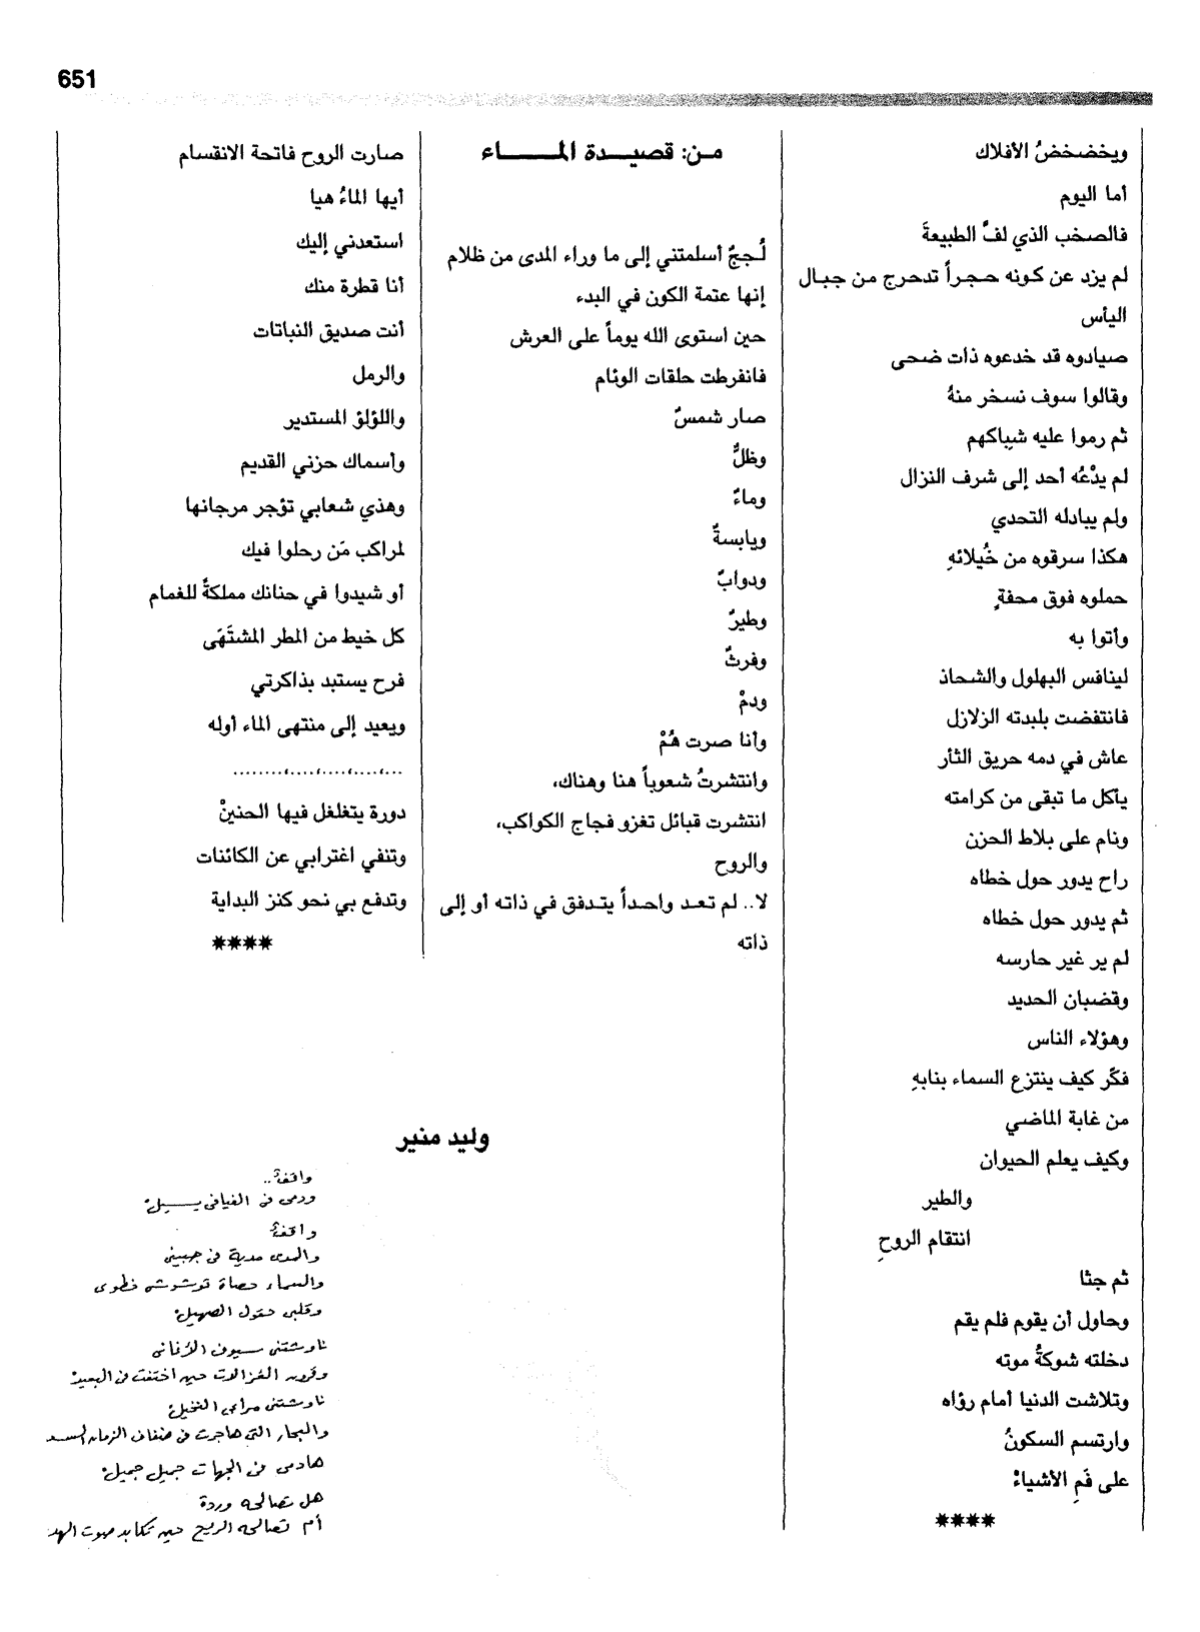 651
ويخضخضُ الأفلاك
أما اليوم
فالصخب الذي لفَّ الطبيعةَ
لم يزد عن كونه حجراً تدحرج من جبال
اليأس
صيادوه قد خدعوه ذات ضحى
وقالوا سوف نسخر منهُ
ثم رموا عليه شباكهم
لم يدْعُه أحد إلى شرف النزال
ولم يبادله التحدي
هكذا سرقوه من خُيلائهِ
حملوه فوق محفةٍ
وأتوا به
لينافس البهلول والشحاذ
فانتفضت بلبدته الزلازل
عاش في دمه حريق الثأر
يأكل ما تبقى من كرامته
ونام على بلاط الحزن
راح يدور حول خطاه
ثم يدور حول خطاه
لم ير غير حارسه
وقضبان الحديد
وهؤلاء الناس
فكّر كيف ينتزع السماء بنابهِ
من غابة الماضي
وكيف يعلم الحيوان
والطير
انتقام الروحِ
ثم جثا
وحاول أن يقوم فلم يقم
دخلته شوكةُ موته
وتلاشت الدنيا أمام رؤاه
وارتسم السكونُ
على فَمِ الأشياءْ
****
من: قصيدة الماء
لُججٌ أسلمتني إلى ما وراء المدى من ظلام
إنها عتمة الكون في البدء
حين استوى الله يوماً على العرش
فانفرطت حلقات الوئام
صار شمسٌ
وظلٌّ
وماءٌ
ويابسةٌ
ودوابٌ
وطيرٌ
وفرثٌ
ودمْ
وأنا صرت هُمْ
وانتشرتُ شعوباً هنا وهناك،
انتشرت قبائل تغزو فجاج الكواكب،
والروح
لا.. لم تعد واحداً يتدفق في ذاته أو إلى
ذاته
صارت الروح فاتحة الانقسام
أيها الماءُ هيا
استعدني إليك
أنا قطرة منك
أنت صديق النباتات
والرمل
واللؤلؤ المستدير
وأسماك حزني القديم
وهذي شعابي تؤجر مرجانها
لمراكب مَن رحلوا فيك
أو شيدوا في حنانك مملكةً للغمام
كل خيط من المطر المشتَهَى
فرح يستبد بذاكرتي
ويعيد إلى منتهى الماء أوله
......................
دورة يتغلغل فيها الحنينْ
وتنفي اغترابي عن الكائنات
وتدفع بي نحو كنز البداية
****
وليد منير
واقفةٌ..
ودمى فى الفيافى يسيلْ
واقفةٌ
والمدى مدية فى جبينى
والسماء حصاة توشوش خطوى
وقلبى حقول الصهيلْ
ناوشتنى سيوف الأغانى
وقرون الغزالات حين اختفت فى البعيدْ
ناوشتنى مرايا النخيلْ
والبحار التى هاجرت فى ضفاف الزمان
هادمى فى الجهات جميل جميلْ
هل تصالحه وردة
أم تصالحه الريح حين تكابد صوت